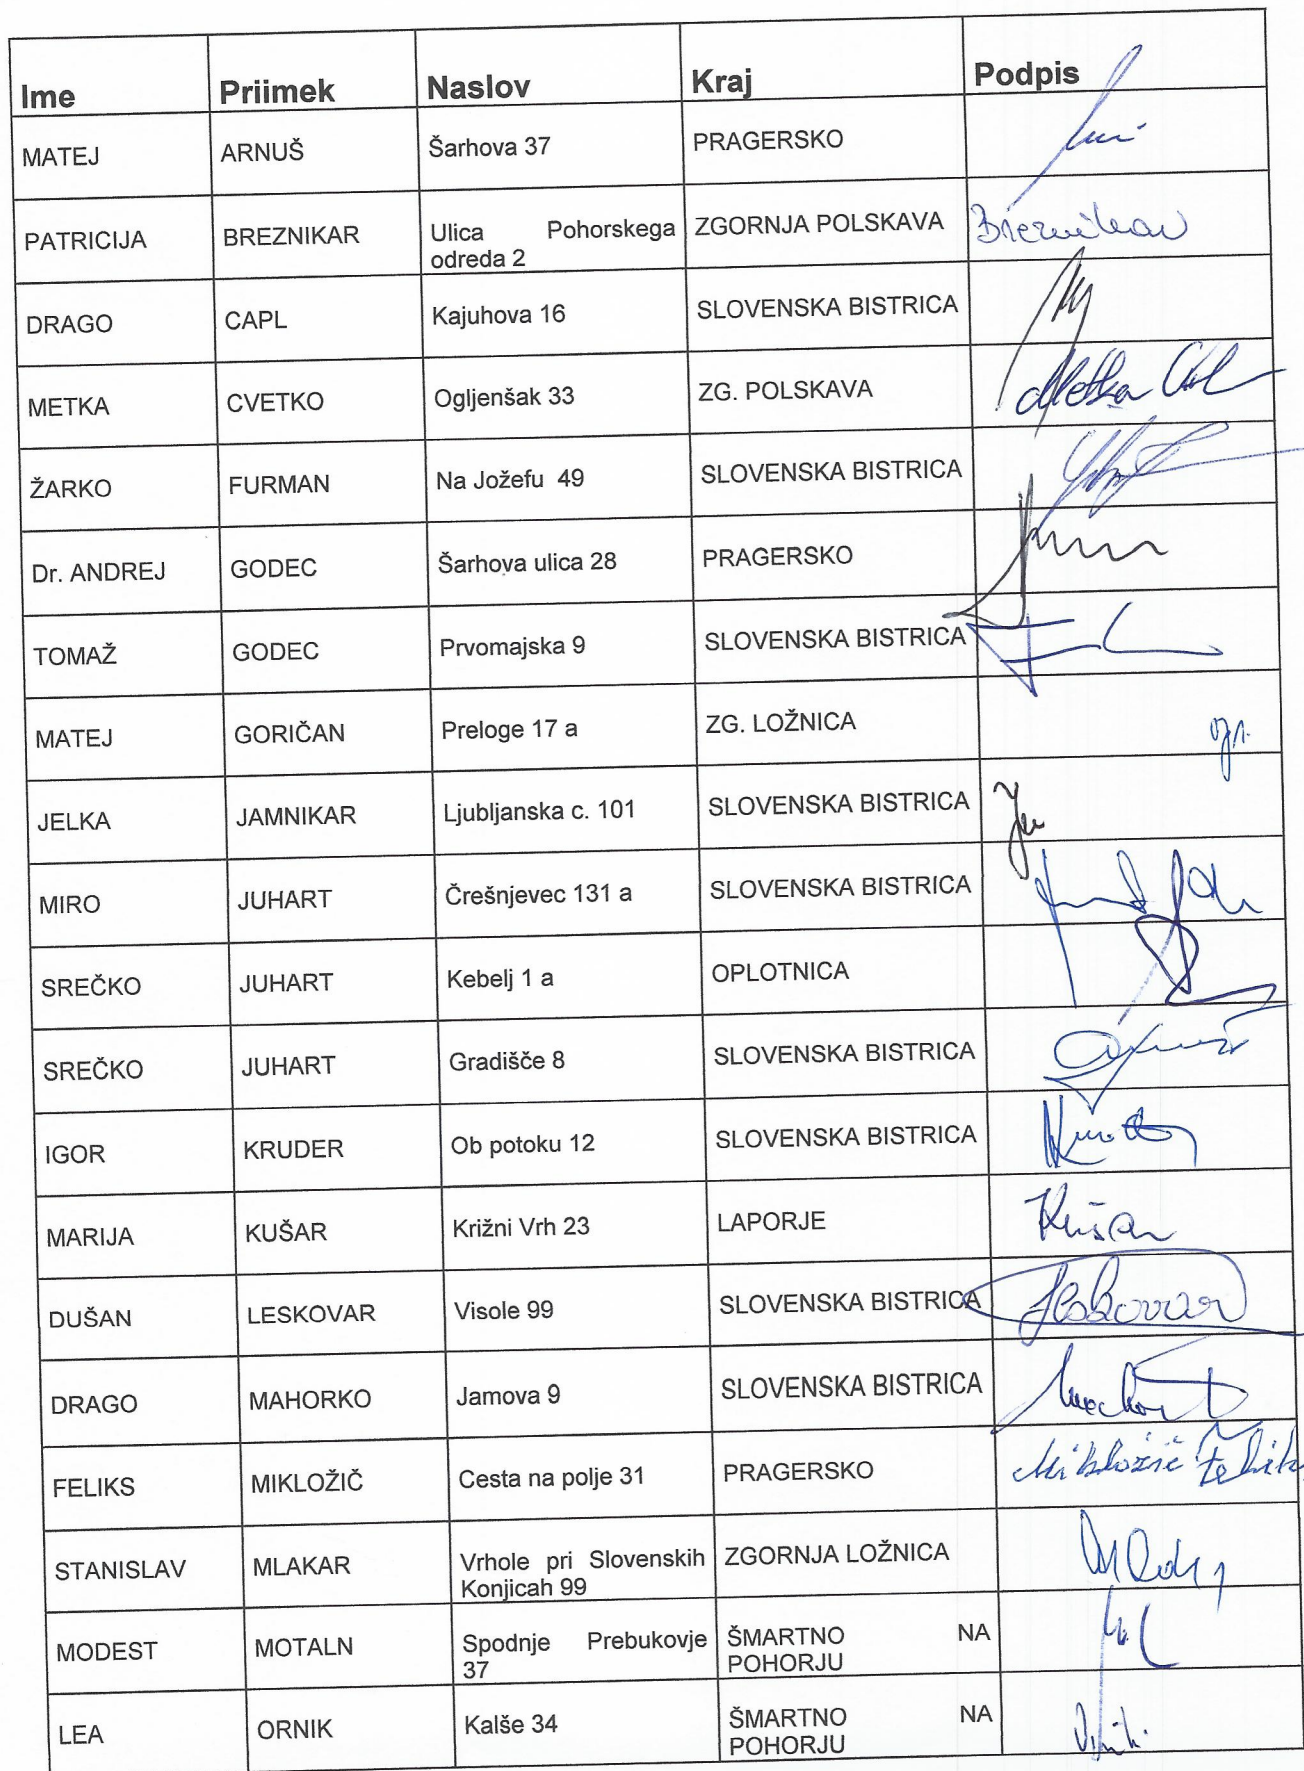 Ime Priimek Naslov Kraj Podpis
MATEJ ARNUŠ Šarhova 37 PRAGERSKO
PATRICIJA BREZNIKAR Ulica Pohorskega odreda 2 ZGORNJA POLSKAVA Breznikar
DRAGO CAPL Kajuhova 16 SLOVENSKA BISTRICA
METKA CVETKO Ogljenšak 33 ZG. POLSKAVA Metka
ŽARKO FURMAN Na Jožefu 49 SLOVENSKA BISTRICA
Dr. ANDREJ GODEC Šarhova ulica 28 PRAGERSKO
TOMAŽ GODEC Prvomajska 9 SLOVENSKA BISTRICA
MATEJ GORIČAN Preloge 17 a ZG. LOŽNICA
JELKA JAMNIKAR Ljubljanska c. 101 SLOVENSKA BISTRICA
MIRO JUHART Črešnjevec 131 a SLOVENSKA BISTRICA
SREČKO JUHART Kebelj 1 a OPLOTNICA
SREČKO JUHART Gradišče 8 SLOVENSKA BISTRICA
IGOR KRUDER Ob potoku 12 SLOVENSKA BISTRICA
MARIJA KUŠAR Križni Vrh 23 LAPORJE Kušar
DUŠAN LESKOVAR Visole 99 SLOVENSKA BISTRICA Leskovar
DRAGO MAHORKO Jamova 9 SLOVENSKA BISTRICA
FELIKS MIKLOŽIČ Cesta na polje 31 PRAGERSKO Mikložič Feliks
STANISLAV MLAKAR Vrhole pri Slovenskih Konjicah 99 ZGORNJA LOŽNICA
MODEST MOTALN Spodnje Prebukovje 37 ŠMARTNO NA POHORJU
LEA ORNIK Kalše 34 ŠMARTNO NA POHORJU